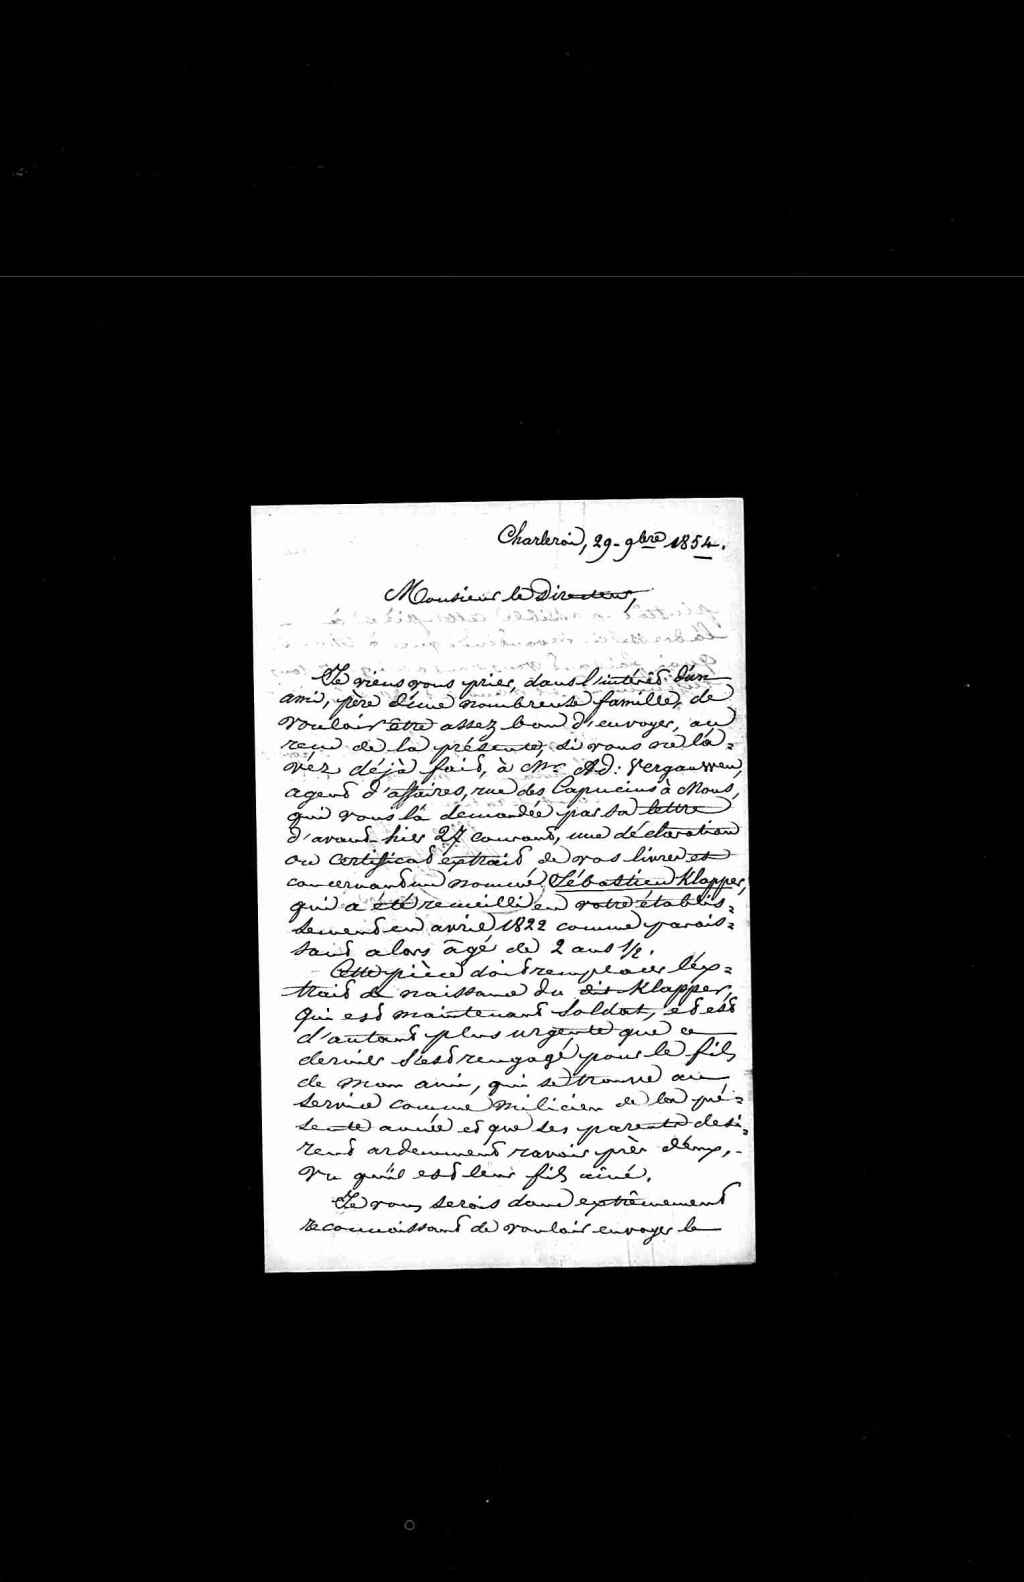 Charleroi, 29 - 9bre 1854.
Monsieur le Directeur,
Je viens vous prier, dans l'intérêt d'un
ami, père d'une nombreuse famille, de
vouloir être assez bon d'envoyer, au
recu de la présente, si vous ne l'a=
vez déjà fait, à Mr. Ad: Vergauwen,
agent d'affaires, rue des Capucins à Mons,
qui vous l'a demandée par sa lettre
d'avant-hier 27 courant, une déclaration
ou certificat extrait de vos livres et
concernant un nommé, Sébastien Klapper,
qui a été recueilli en votre établis=
sement en avril 1822 comme parais=
sant alors âgé de 2 ans 1/2.
Cette pièce doit remplacer l'ex=
trait de naissance du dit Klapper,
qui est maintenant soldat, et est
d'autant plus urgente que ce
dernier s'est rengagé pour le fils
de mon ami, qui se trouve au
service comme milicien de la pré=
sente année et que ses parents dési=
rent ardemment ravoir près d'eux, -
vu qu'il est leur fils aîné.
Je vous serois donc extrêmement
reconnoissant de vouloir envoyer le